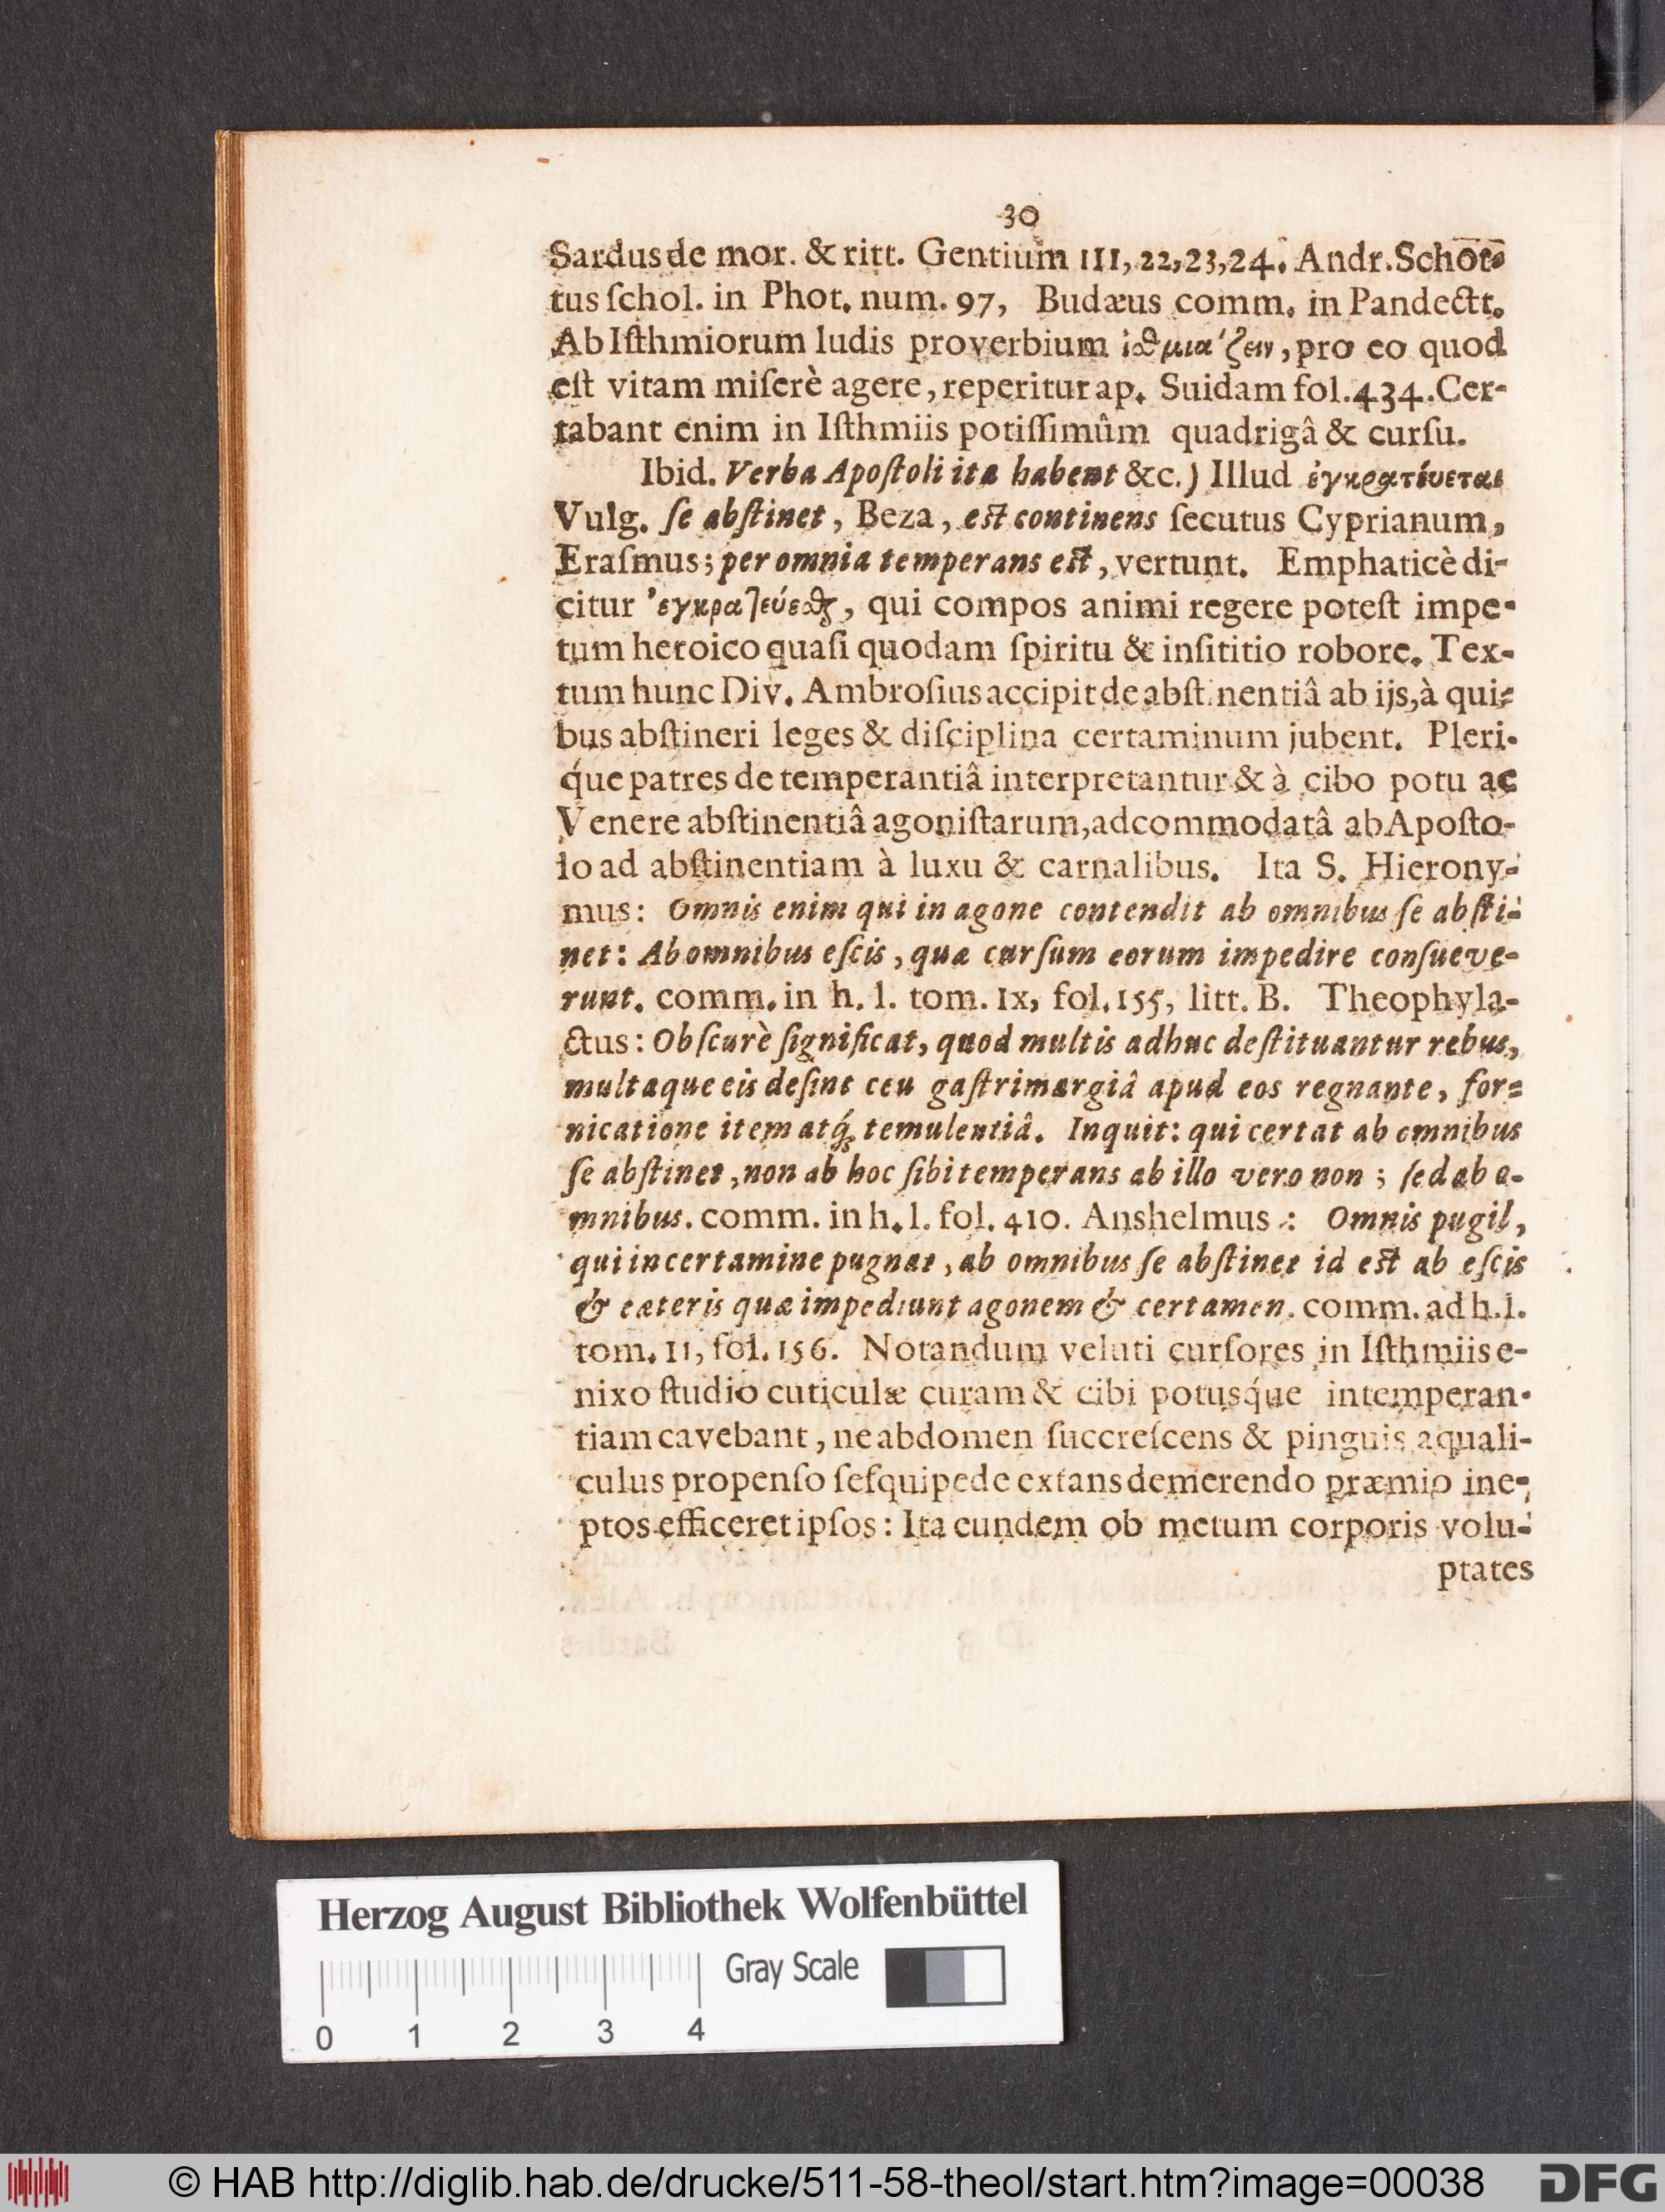 30
Sardus de mor. & ritt. Gentium III, 22,23,24. Andr. Schot-
tus ſchol. in Phot. num. 97, Budæus comm. in Pandectt.
Ab Iſthmiorum ludis proverbium ἰσθμιάζειν, pro eo quod
eſt vitam miſerè agere, reperitur ap. Suidam fol. 434. Cer-
tabant enim in Iſthmiis potiſſimûm quadrigâ & curſu.
Ibid. Verba Apoſtoli ita habent &c.) Illud ἐγκρατεύεται
Vulg. ſe abſtinet, Beza, eſt continens ſecutus Cyprianum,
Eraſmus; per omnia temperans eſt, vertunt. Emphaticè di-
citur ἐγκρατεύεσθαι, qui compos animi regere poteſt impe-
tum heroico quaſi quodam ſpiritu & inſititio robore. Tex-
tum hunc Div. Ambroſius accipit de abſtinentiâ ab ijs, à qui-
bus abſtineri leges & diſciplina certaminum jubent. Pleri-
q́ue patres de temperantiâ interpretantur & à cibo potu ac
Venere abſtinentiâ agoniſtarum, adcommodatâ ab Apoſto-
lo ad abſtinentiam à luxu & carnalibus. Ita S. Hierony-
mus: Omnis enim qui in agone contendit ab omnibus ſe abſti-
net: Ab omnibus eſcis, quæ curſum eorum impedire conſueve-
runt. comm. in h. l. tom. IX, fol. 155, litt. B. Theophyla-
ctus: Obſcurè ſignificat, quod multis adhuc deſtituantur rebus,
multaque eis deſint ceu gaſtrimargiâ apud eos regnante, for-
nicatione item atq́; temulentiâ. Inquit: qui certat ab omnibus
ſe abſtinet, non ab hoc ſibi temperans ab illo vero non; ſed ab o-
mnibus. comm. in h. l. fol. 410. Anshelmus: Omnis pugil,
qui in certamine pugnat, ab omnibus ſe abſtinet id eſt ab eſcis
& cæteris quæ impediunt agonem & certamen. comm. ad h. l.
tom. II, fol. 156. Notandum veluti curſores in Iſthmiis e-
nixo ſtudio cuticulæ curam & cibi potusq́ue intemperan-
tiam cavebant, ne abdomen ſuccreſcens & pinguis aquali-
culus propenſo ſeſquipede extans demerendo præmio ine-
ptos efficeret ipſos: Ita eundem ob metum corporis volu-
ptates
Herzog August Bibliothek Wolfenbüttel
Gray Scale
0 1 2 3 4
© HAB http://diglib.hab.de/drucke/511-58-theol/start.htm?image=00038
DFG